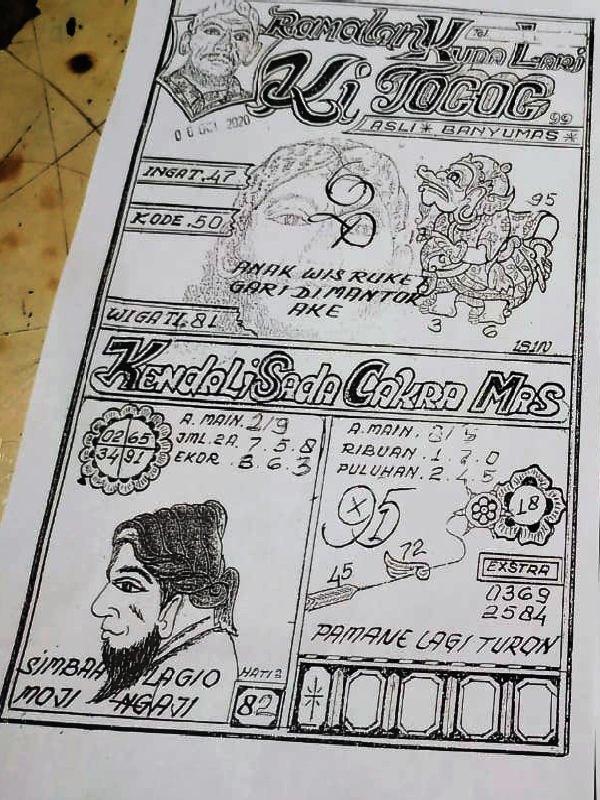 Ramalan Kuda Lari
Ki TOGOG
99
ASLI * BANYUMAS *
0 6 OCT 2020
INGAT.47
KODE.50
WIGATI.81
95
ANAK WIS RUKET
GARI DI MANTOK
AKE
3 6
ISIN
KENDALI SADA CAKRA MAS
02 65
34 91
A. MAIN. 2/9
JML. 2A. 7. 5. 8
EKOR . 8. 6. 3
SIMBAH LAGIO
MOJI NGAJI
HATI2
82
A. MAIN. 8/5
RIBUAN . 1. 7. 0
PULUHAN. 2. 4. 5
95
18
72
45
EXSTRA
0369
2584
PAMANE LAGI TURON